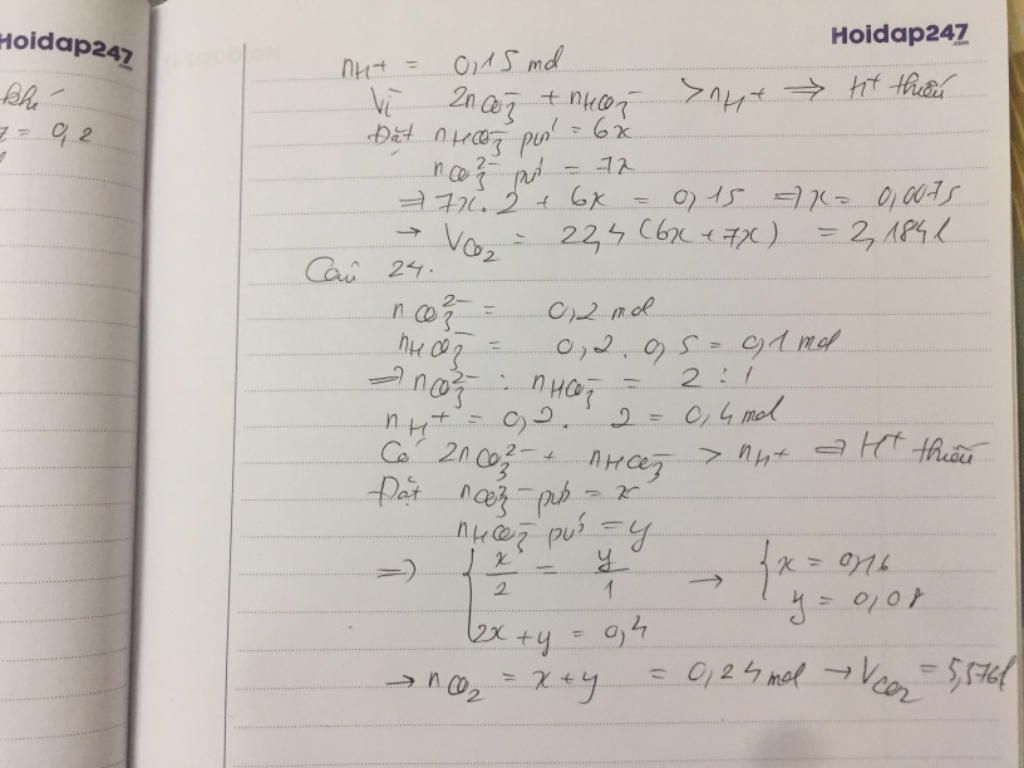 Hoidap247
.com
khí
= 0,2
Hoidap247
.com
nH+ = 0,15 mol
Vì 2nCO3²⁻ + nHCO3⁻ > nH+ ⇒ H+ thiếu
Đặt nHCO3⁻ pứ = 6x
nCO3²⁻ pứ = 7x
⇒ 7x.2 + 6x = 0,15 ⇒ x = 0,0075
→ VCO2 = 22,4 (6x+7x) = 2,184 l
Câu 24.
nCO3²⁻ = 0,2 mol
nHCO3⁻ = 0,2 . 0,5 = 0,1 mol
⇒ nCO3²⁻ : nHCO3⁻ = 2 : 1
nH+ = 0,2 . 2 = 0,4 mol
Có 2nCO3²⁻ + nHCO3⁻ > nH+ ⇒ H+ thiếu
Đặt nCO3²⁻ pứ = x
nHCO3⁻ pứ = y
⇒ { x/2 = y/1 → { x = 0,16
y = 0,08
2x + y = 0,4
→ nCO2 = x + y = 0,24 mol → VCO2 = 5,376 l